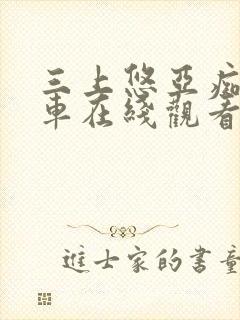 三上悠亞痴
車在綫觀看
進士家的書童